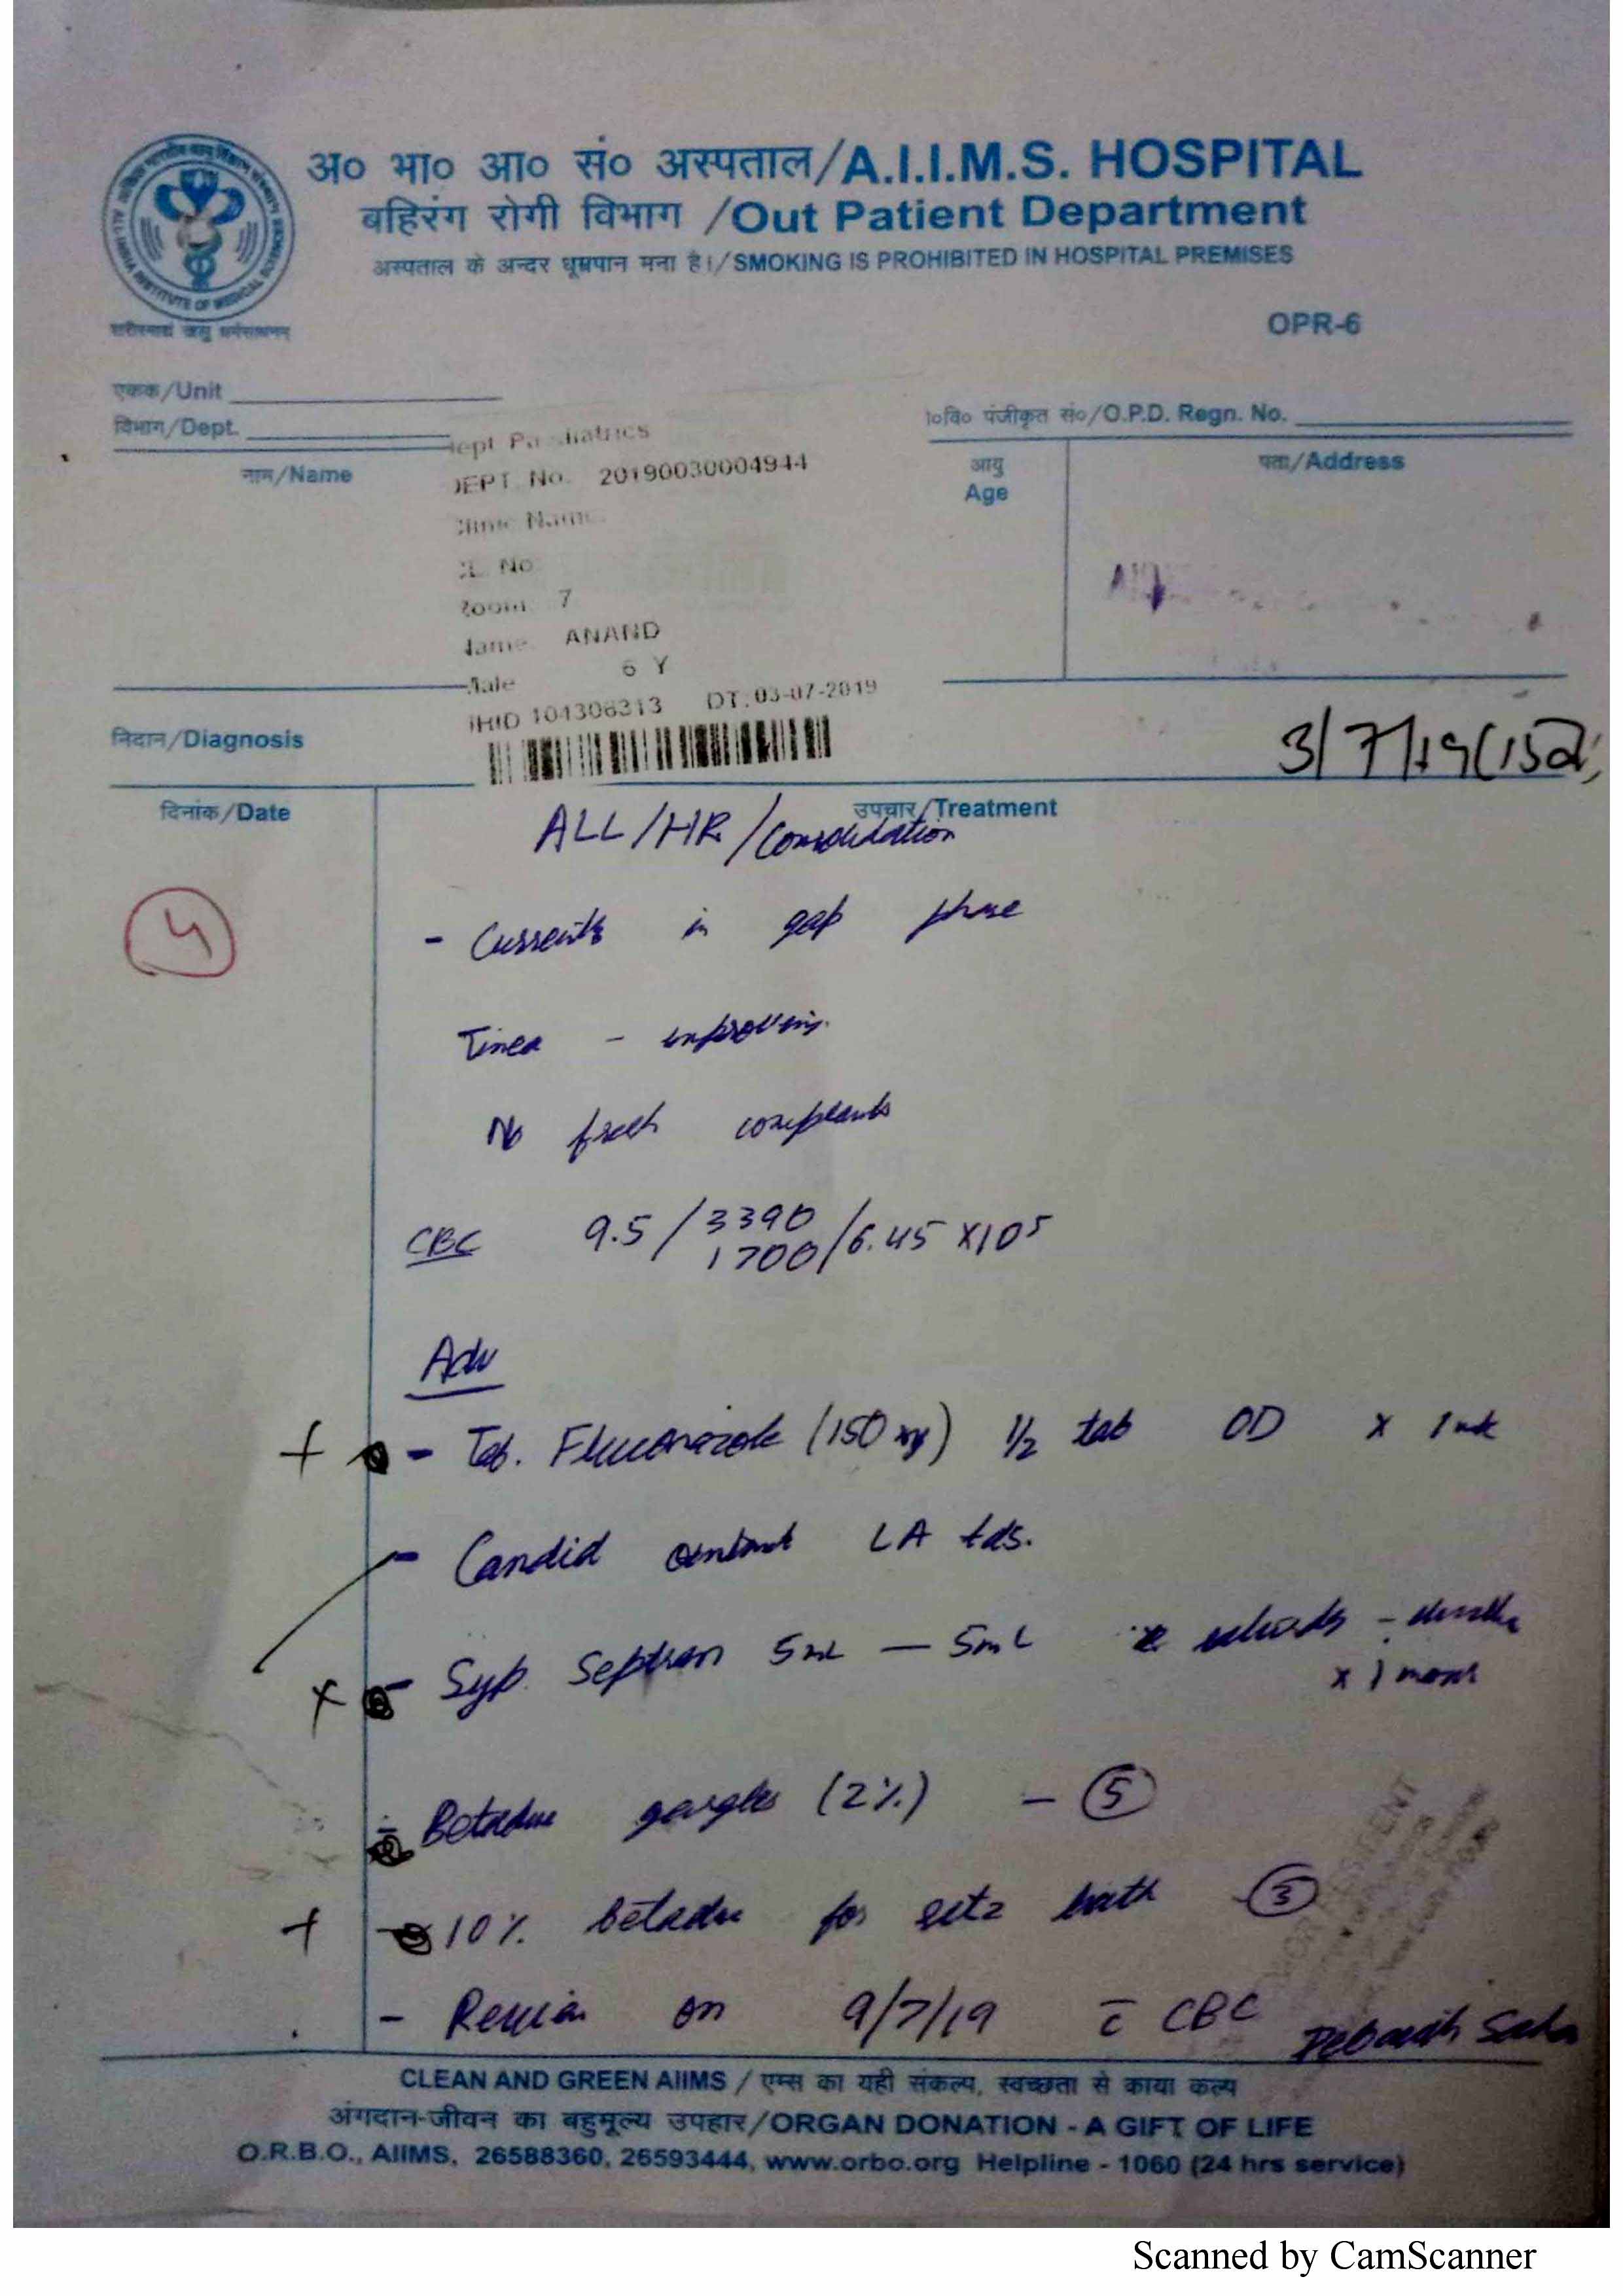 अ० भा० आ० सं० अस्पताल/A.I.I.M.S. HOSPITAL
बहिरंग रोगी विभाग /Out Patient Department
अस्पताल के अन्दर धूम्रपान मना है।/SMOKING IS PROHIBITED IN HOSPITAL PREMISES
OPR-6
एकक/Unit
विभाग/Dept.
पंजीकृत सं०/O.P.D. Regn. No.
नाम/Name
आयु
Age
पता/Address
DEPT No. 20190030004944
7
ANAND
6 Y
104306313 DT. 03-07-2019
निदान/Diagnosis
3/7/19
दिनांक/Date
उपचार/Treatment
ALL/HR/Consolidation
4
- Currently in gap phase
Tinea - improving.
No fresh complaints
CBC 9.5/3390/6.45 x10⁵
1700
Adv
- Tab. Fluconazole (150 mg) 1/2 tab OD x 1 wk
- Candid LA tds.
- Syp. Septran 5mL — 5mL
x 1 month
- Betadine gargles (2%) - 5
- 10% betadine for sitz bath - 3
- Review on 9/7/19 c̄ CBC
CLEAN AND GREEN AIIMS / एम्स का यही संकल्प, स्वच्छता से काया कल्प
अंगदान-जीवन का बहुमूल्य उपहार/ORGAN DONATION - A GIFT OF LIFE
O.R.B.O., AIIMS, 26588360, 26593444, www.orbo.org Helpline - 1060 (24 hrs service)
Scanned by CamScanner